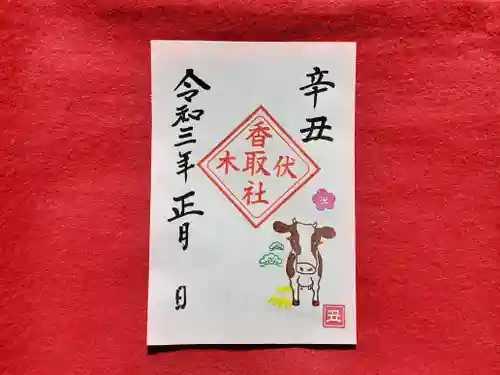 辛丑
伏木
香取社
丑
令和三年正月 日